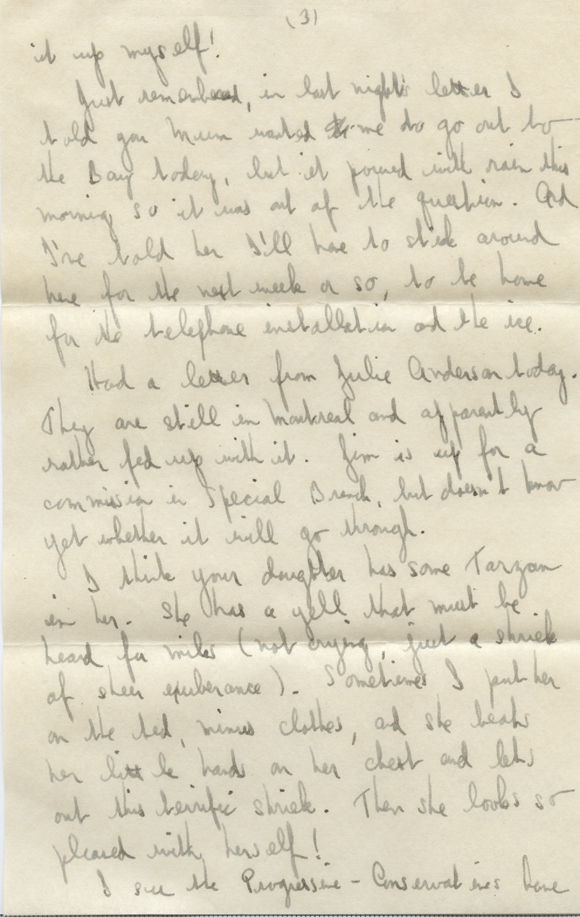 (3)
it up myself!
Just remembered, in last night's letter I
told you Mum wanted me to go out to
the Bay today, but it poured with rain this
morning so it was out of the question. And
I've told her I'll have to stick around
here for the next week or so, to be home
for the telephone installation and the ice.
Had a letter from Julie Anderson today.
They are still in Montreal and apparently
rather fed up with it. Jim is up for a
commission in Special Branch, but doesn't know
yet whether it will go through.
I think your daughter has some Tarzan
in her. She has a yell that must be
heard for miles (not crying, just a shriek
of sheer exuberance). Sometimes I put her
on the bed, minus clothes, and she beats
her little hands on her chest and lets
out this terrific shriek. Then she looks so
pleased with herself!
I see the Progressive - Conservatives have